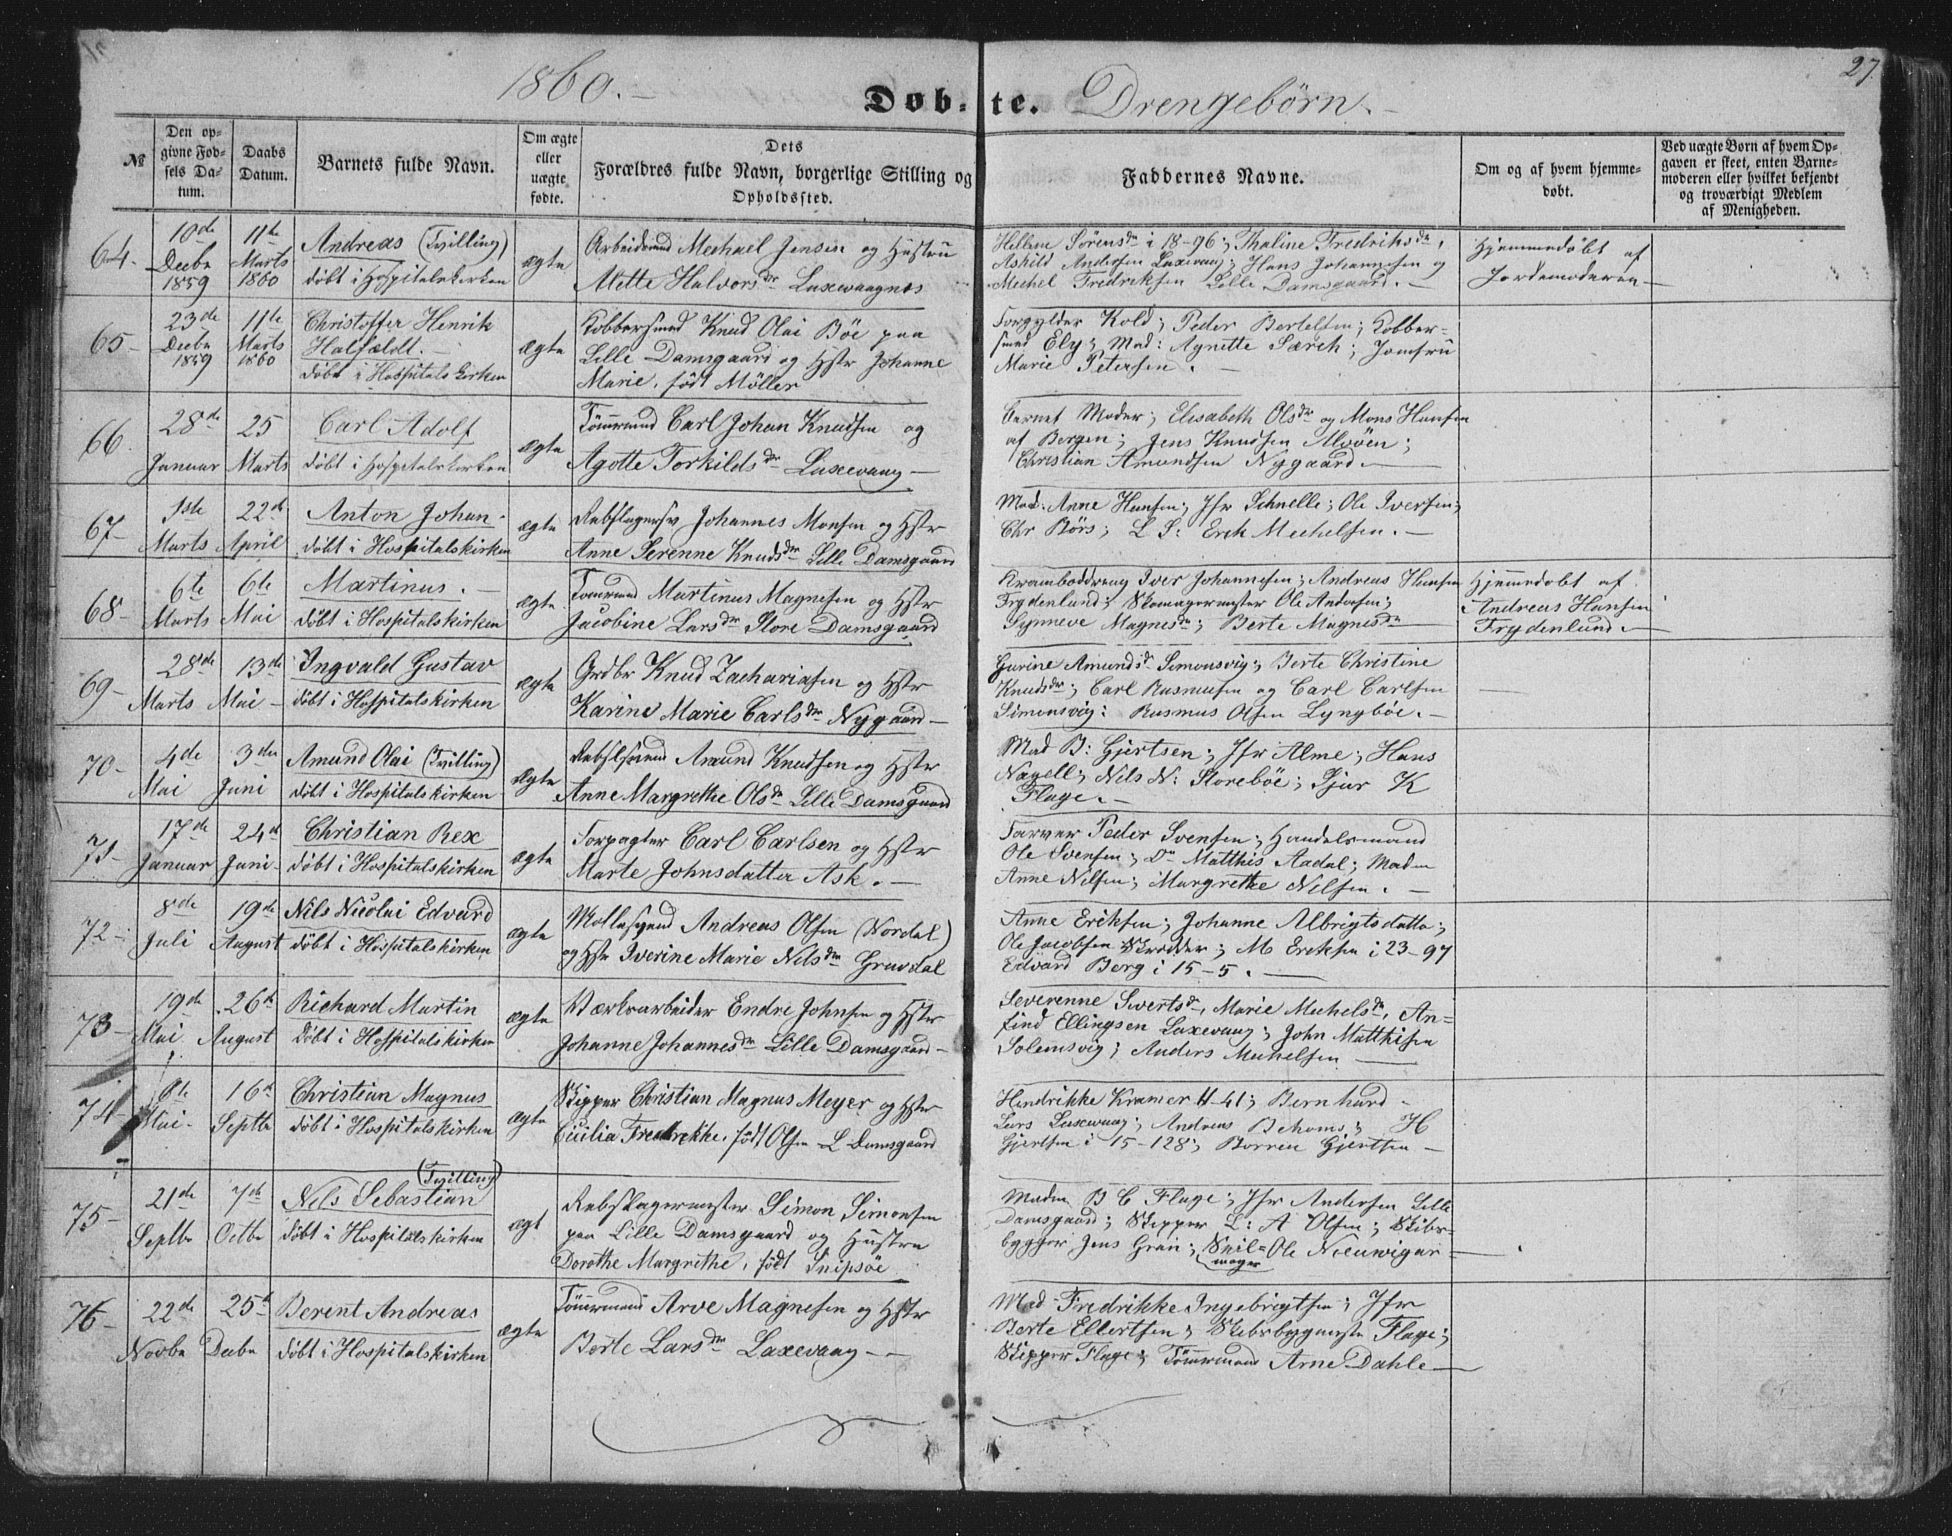 27
1860.-
Döb-te. Drengebörn.-
№
Den op-
givne Fød-
sels Da-
tum.
Daabs
Datum.
Barnets fulde Navn.
Om ægte
eller
uægte
fødte.
Dets
Forældres fulde Navn, borgerlige Stilling og
Opholdssted.
Faddernes Navne.
Om og af hvem hjemme-
døbt.
Ved uægte Børn af hvem Op-
gaven er skeet, enten Barne-
moderen eller hvilket bekjendt
og troværdigt Medlem
af Menigheden.
64-
10de
Decbr
1859
11te
Marts
1860
Andreas (Tvilling)
döbt i Hospitalskirken
ægte
Arbeidsmd Mechael Jensen og Hustru
Mette Halvorsdr Laxevaagnæs
Hellene Sörensdr i 18-96; Thaline Fredriksdr,
Askild Andersen Laxevaag; Hans Johannesen og
Mechel Fredriksen Lille Damsgaard.-
Hjemmedöbt af
Jordemoderen-
65-
23de
Decbr
1859
11te
Marts
1860
Christoffer Henrik
Halfældt.-
döbt i Hospitalskirken
ægte
Kobbersmed Knud Olai Böe paa
Lille Damsgaard og Hstr Johanne
Marie, född Möller
Forgylder Kold; Peder Bertelsen; Kobber-
smed Ely; Mad: Agnette Særck; Jomfru
Marie Petersen.-
66.
28de
Januar
25
Marts
Carl Adolf
döbt i Hospitalskirken
ægte
Tömmermd Carl Johan Knudsen og
Agotte Torkildsdr Laxevaag-
Barnet Moder; Elisabeth Olsdr og Mons Hansen
af Bergen; Jens Knudsen Alvöen;
Christian Amundsen Nygaard.-
67-
1ste
Marts
22de
April
Anton Johan-
döbt i Hospitalskirken
ægte
Rebslagersv Johannes Monsen og Hstr
Anne Serenne Knudsdr Lille Damsgaard
Mad: Anne Hansen; Jfr Schnelle; Ole Iversen;
Chr Börs; L S: Erik Mechelsen.-
68-
6te
Marts
6te
Mai
Martinus.-
döbt i Hospitalskirken
ægte
Tömrmd Martinus Magnesen og Hstr
Jacobine Larsdr Store Damsgaard
Kramboddreng Iver Johannesen; Andreas Hansen
Frydenlund; Skomagermester Ole Andersen;
Synneve Magnesdr; Berte Magnesdr
Hjemmedöbt af
Andreas Hansen
Frydenlund.-
69-
28de
Marts
13de
Mai-
Ingvald Gustav
döbt i Hospitalskirken
ægte
Grdbr Knud Zachariasen og Hstr
Karine Marie Carlsdr Nygaard-
Gurine Amundsdr Simonsvig; Berte Christine
Knudsdr; Carl Rasmusen og Carl Carlsen
Simonsvig: Rasmus Olsen Lyngböe.-
70-
4de
Mai
3die
Juni
Amund Olai (Tvilling)
döbt i Hospitalskirken
ægte
Rebslsvend Amund Knudsen og Hstr
Anne Margrethe Olsdr Lille Damsgaard
Mad B: Gjertsen; Jfr Alme; Hans
Nagell; Nils N: Storeböe; Sjur K
Flage.-
71-
17de
Januar
24de
Juni-
Christian Rex
döbt i Hospitalskirken
ægte
Forpagter Carl Carlsen og Hstr
Marte Johnsdatter Ask.-
Farver Peder Svensen; Handelsmand
Ole Svensen; Do Matthis Aadal; Madm
Anne Nilsen; Margrethe Nilsen.-
72-
8de
Juli
19de
August
Nils Nicolai Edvard
döbt i Hospitalskirken
ægte
Andreas Olsen (Nordal)
og Hstr Iverine Marie Nilsdr Gravdal
Anne Eriksen; Johanne Albrigtsdatter;
Ole Jacobsen Skrædder; M Eriksen i 23-97
Edvard Berg i 15-5.-
73-
19de
Mai
26de
August
Richard Martin
döbt i Hospitalskirken
ægte
Værksarbeider Endre Johnsen og Hstr
Johanne Johannesdr Lille Damsgaard-
Severenne Sivertsdr, Marie Mechelsdr, An-
find Ellingsen Laxevaag; John Matthisen
Solemsvig; Anders Mechelsen-
74-
6te
Mai-
16de
Septbr
Christian Magnus
döbt i Hospitalskirken
ægte
Skipper Christian Magnus Meyer og Hstr
Cicilia Fredrikke, född Olsen L Damsgaard
Hendrikke Kramer 4-41; Bernhard-
Lars Laxevaag; Andreas Behams; H
Gjertsen i 15-128; Borren Gjertsen-
75-
21de
Septbr
7de
Octbr
(Tvilling)
Nils Sebastian
döbt i Hospitalskirken
ægt
Rebslagermester Simon Simonsen
paa Lille Damsgaard og Hustru
Dorothe Margrethe, född Knipsöe
Madm B C Flage; Jfr Andersen Lille
Damsgaard; Skipper L: A Olsen; Skibs-
bygger Jens Gran; Seil- Ole Nieuwigar-
mager
76-
22de
Novbr
25de
Decbr
Berent Andreas
döbt i Hospitalskirken
ægte
Tömmermand Arve Magnesen og Hstr
Berte Larsdr Laxevaag--
Mad- Fredrikke Ingebrigtsen; Jfr
Berte Ellertsen; Skibsbygmester Flage;
Skipper Flage; Tömmermand Arne Dahle-